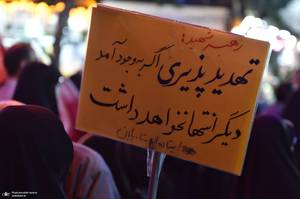 رهبر شهید:
تهدید پذیری اگر بوجود آمد
دیگر انتها نخواهد داشت